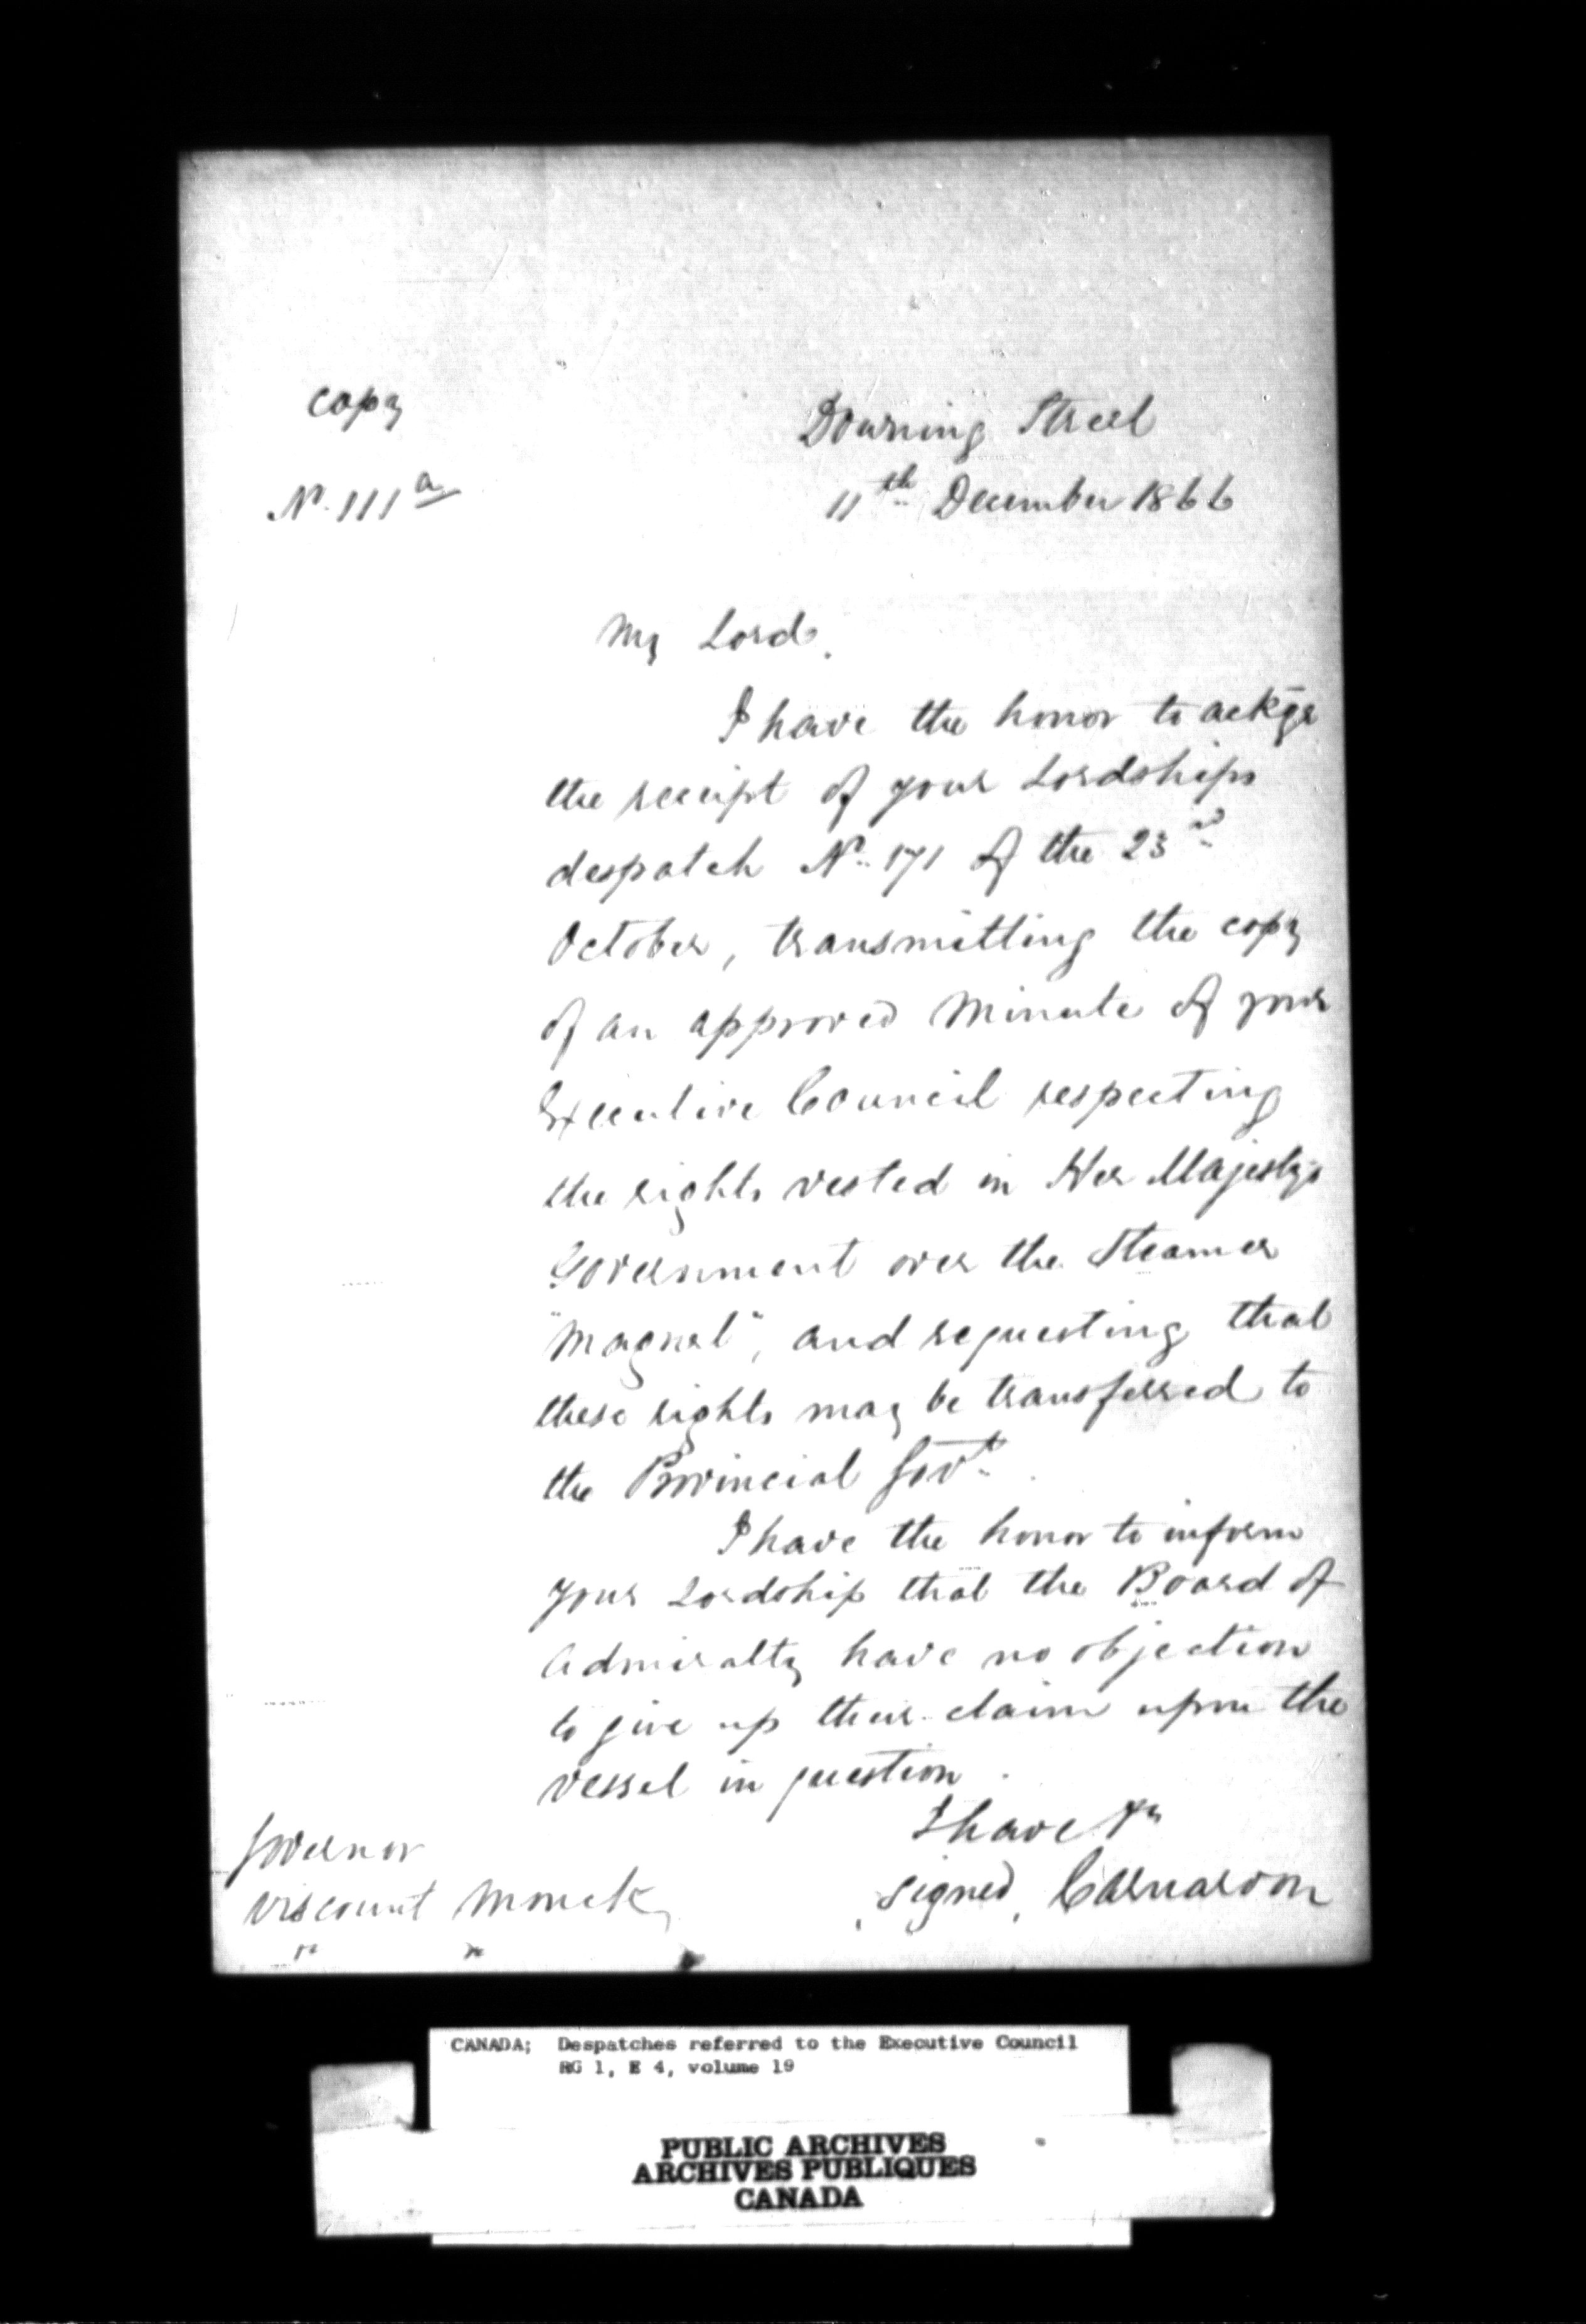 Copy
Downing Street
No. 111a
11th December 1866
My Lord,
I have the honor to ackge
the receipt of your Lordships
despatch No. 171 of the 23rd
October, transmitting the copy
of an approved Minute of your
Executive Council respecting
the rights vested in Her Majesty's
Government over the Steamer
"Magnet", and requesting that
these rights may be transferred to
the Provincial Govt.
I have the honor to inform
your Lordship that the Board of
Admiralty have no objection
to give up their claim upon the
vessel in question.
I have &c
signed, Carnarvon
Governor
Viscount Monck
CANADA; Despatches referred to the Executive Council
RG 1, E 4, volume 19
PUBLIC ARCHIVES
ARCHIVES PUBLIQUES
CANADA